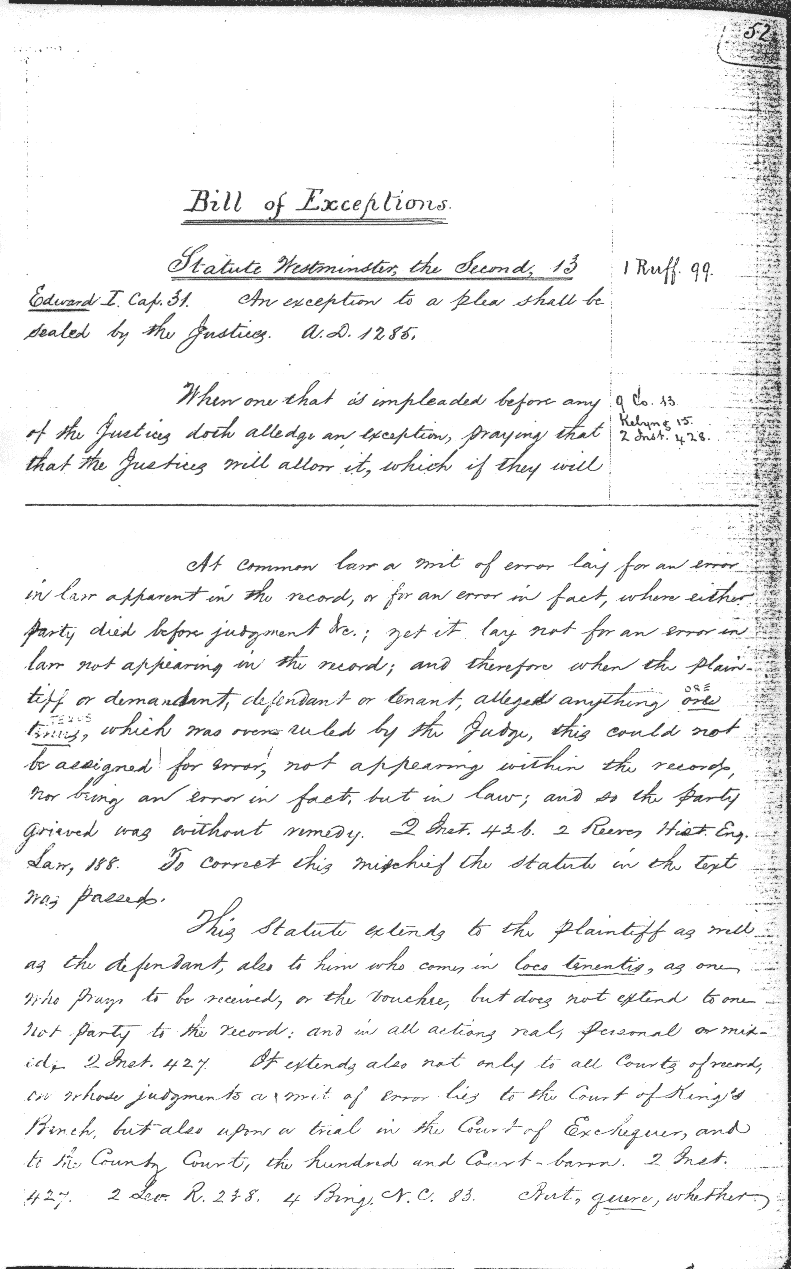 52
Bill of Exceptions.
Statute Westminster, the Second, 13
1 Ruff. 99.
Edward I. Cap. 31. An exception to a plea shall be
sealed by the Justices. A.D. 1285.
When one that is impleaded before any
9 Co. 13.
of the Justices doth alledge an exception, praying that
Kelyng 15.
2 Inst. 428.
that the Justices will allow it, which if they will
At common law a writ of error lay for an error
in law apparent in the record, or for an error in fact, where either
party died before judgment &c.; yet it lay not for an error in
law not appearing in the record; and therefore when the plain-
tiff or demandant, defendant or tenant, alleged anything ore
ORE
tenus, which was over-ruled by the Judge, this could not
TENUS
be assigned for error, not appearing within the record,
nor being an error in fact, but in law; and so the party
grieved was without remedy. 2 Inst. 426. 2 Reeves Hist. Eng.
Law, 188. To correct this mischief the statute in the text
was passed.
This Statute extends to the plaintiff as well
as the defendant, also to him who comes in loco tenentis, as one
who prays to be received, or the vouchee, but does not extend to one
not party to the record; and in all actions real, personal or mix-
ed. 2 Inst. 427. It extends also not only to all Courts of record,
on whose judgments a writ of error lies to the Court of King's
Bench, but also upon a trial in the Court of Exchequer, and
to the County Court, the hundred and Court-baron. 2 Inst.
427. 2 Lev. R. 238. 4 Bing. N.C. 83. But, quere, whether